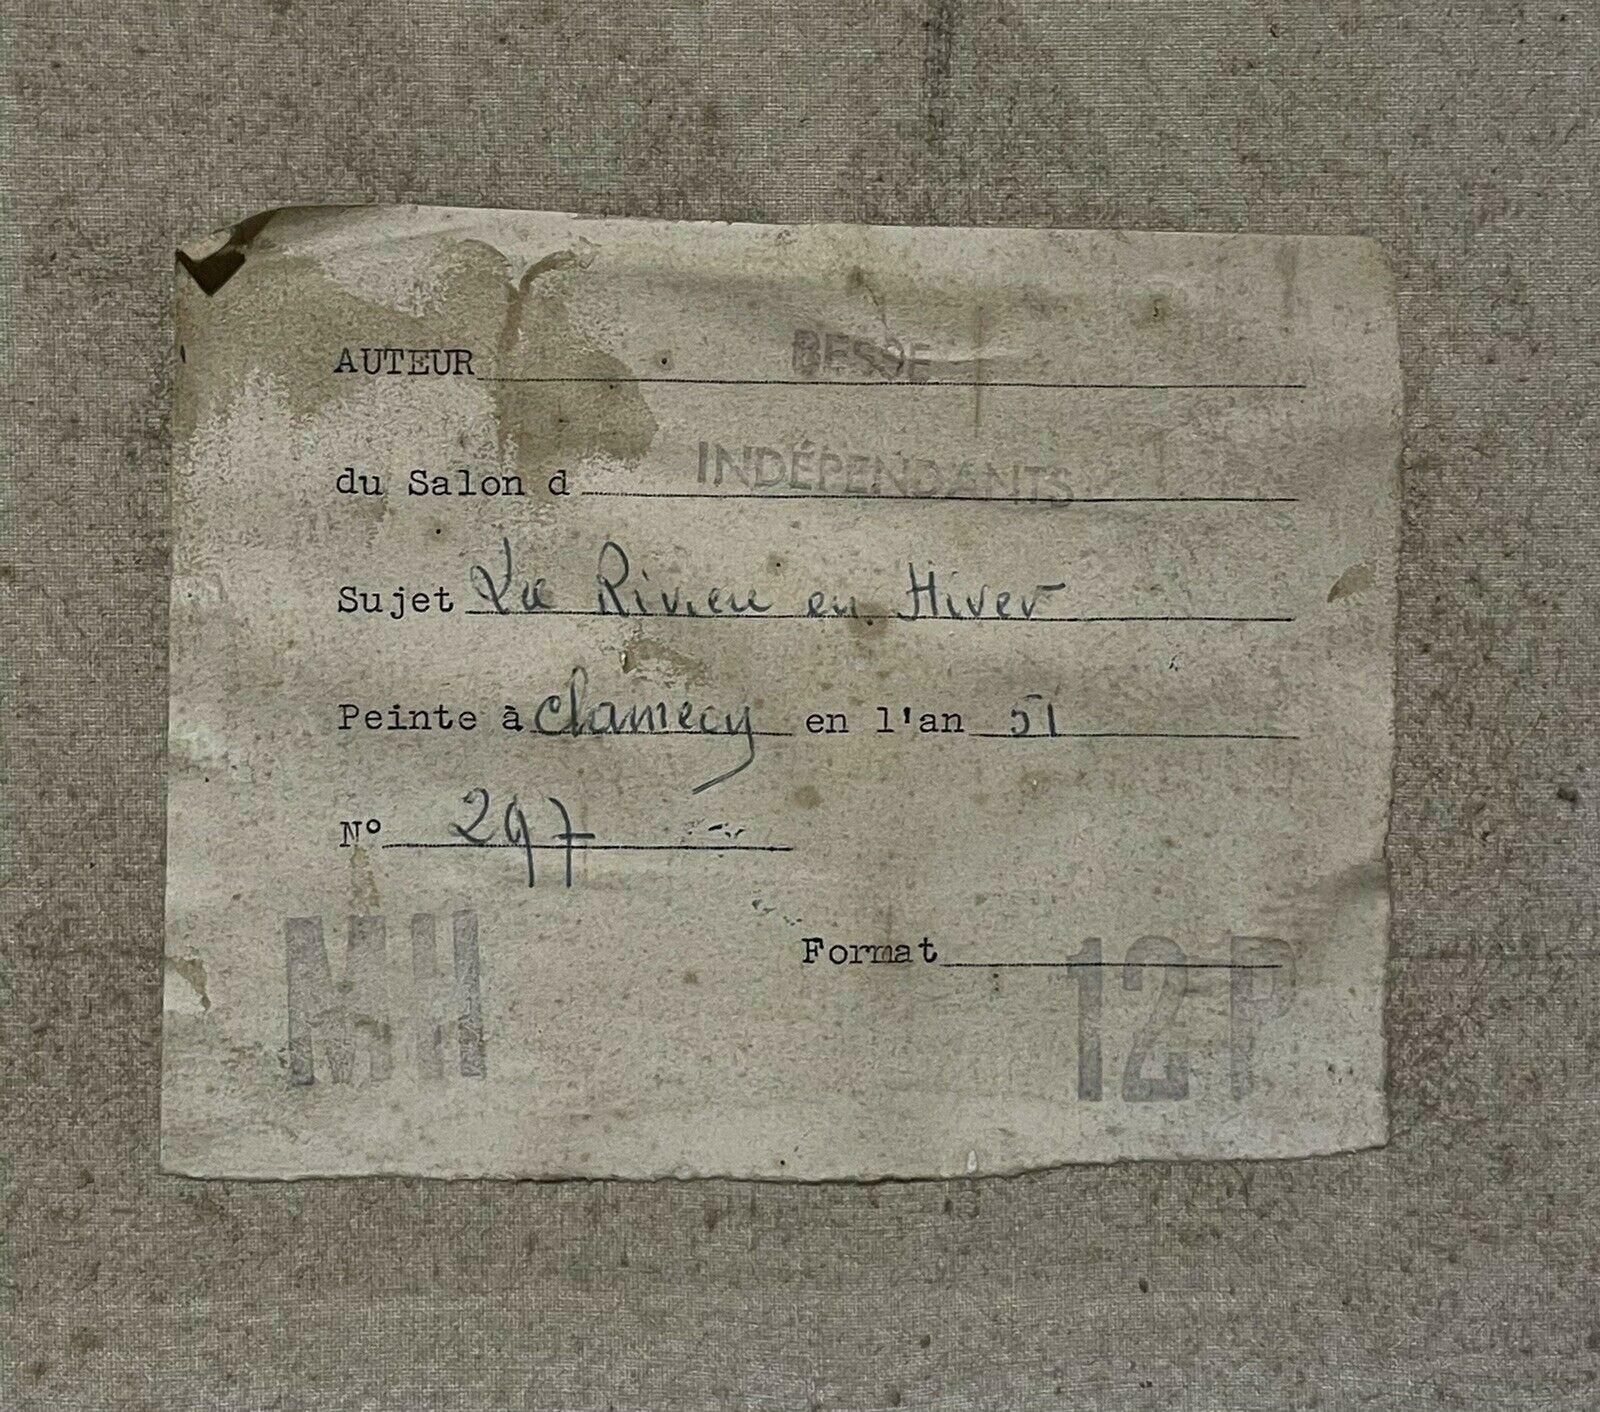 AUTEUR BESSE
du Salon d INDÉPENDANTS
Sujet La Rivière en Hiver
Peinte à Clamecy en l'an 51
Nº 297
MH Format 12P